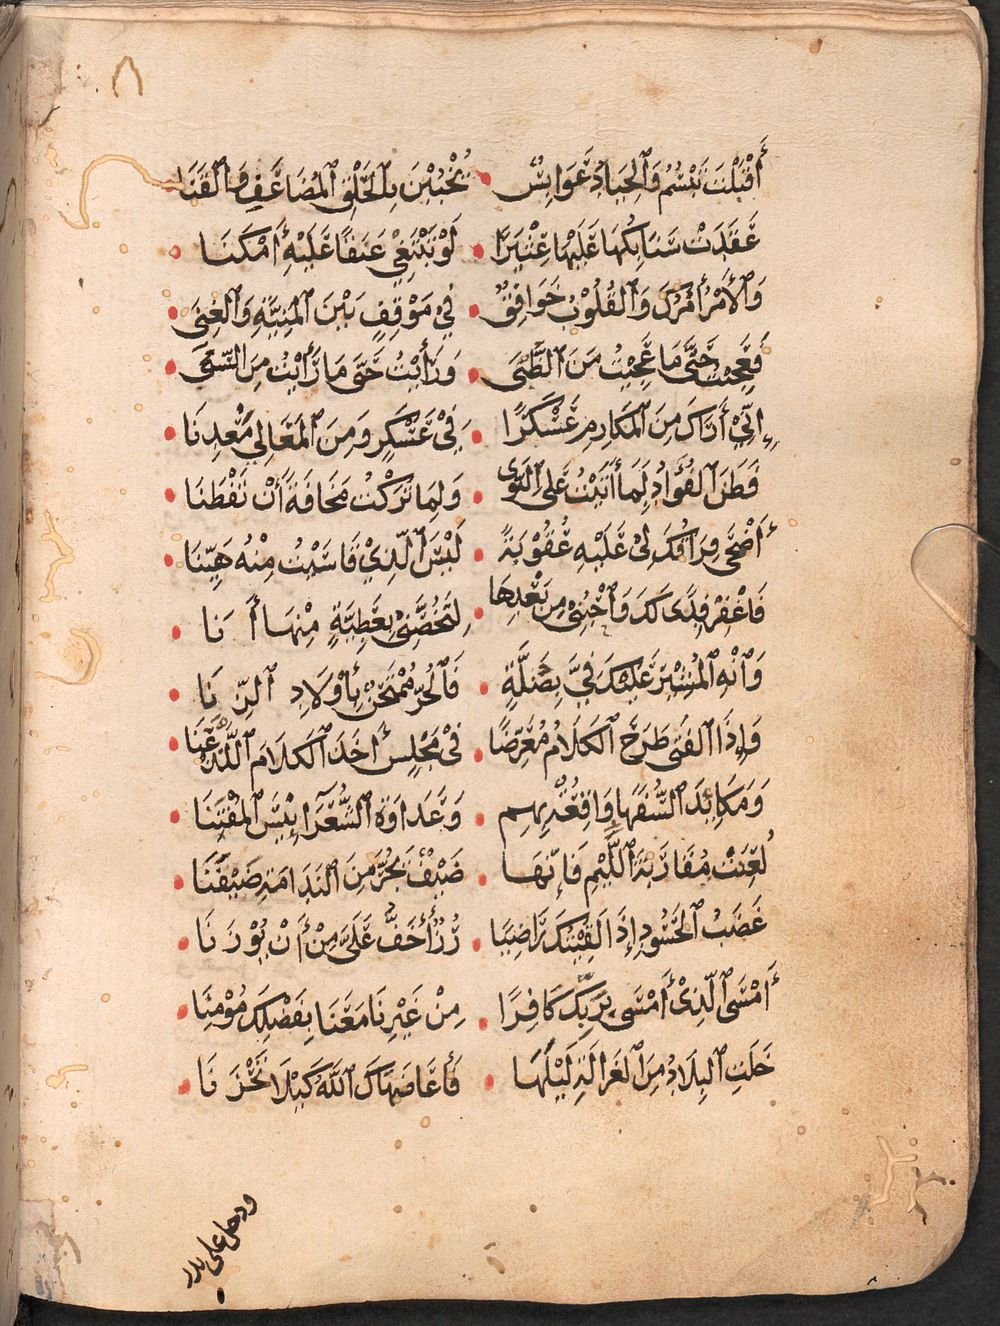 أَقْبَلْتَ تَبْسُمُ وَالْجِيَادُ عَوَابِسٌ • يَخْبُبْنَ بِالْحَلَقِ الْمُضَاعَفِ وَالْقَنَا
عَقَدَتْ سَنَابِكُهَا عَلَيْهَا عِثْيَرًا • لَوْ تَبْتَغِي عَنَقًا عَلَيْهِ أَمْكَنَا •
وَالْأَمْرُ أَمْرُكَ وَالْقُلُوبُ خَوَافِقٌ • فِي مَوْقِفٍ بَيْنَ الْمَنِيَّةِ وَالْمِنَى •
فَعَجِبْتُ حَتَّى مَا عَجِبْتُ مِنَ الظُّبَى • وَرَأَيْتُ حَتَّى مَا رَأَيْتُ مِنَ السَّنَى •
إِنِّي أَرَاكَ مِنَ الْمَكَارِمِ عَسْكَرًا • فِي عَسْكَرٍ وَمِنَ الْمَعَالِي مَعْدِنَا •
فَطِنَ الْفُؤَادُ لِمَا أَتَيْتُ عَلَى النَّوَى • وَلِمَا تَرَكْتُ مَخَافَةَ أَنْ تَفْطَنَا •
أَضْحَى فِرَاقُكَ لِي عَلَيْهِ عُقُوبَةً • لَيْسَ الَّذِي قَاسَيْتُ مِنْهُ هَيِّنَا •
فَاغْفِرْ فِدًى لَكَ وَاحْبُنِي مِنْ بَعْدِهَا • لِتَخُصَّنِي بِعَطِيَّةٍ مِنْهَا أَنَا •
وَانْهَ الْمُشِيرَ عَلَيْكَ فِيَّ بِضَلَّةٍ • فَالْحُرُّ مُمْتَحَنٌ بِأَوْلَادِ الزِّنَا •
وَإِذَا الْفَتَى طَرَحَ الْكَلَامَ مُعَرِّضًا • فِي مَجْلِسٍ أَخَذَ الْكَلَامَ اللَّذْ عَنَا •
وَمَكَايِدَ السُّفَهَا وَاقِعَةٌ بِهِم • وَعَدَاوَةُ الشُّعَرَا بِئْسَ الْمُقْتَنَا •
لُعِنَتْ مُقَارَنَةُ اللَّئِيمِ فَإِنَّهَا • ضَيْفٌ يَجُرُّ مِنَ النَّدَامَةِ ضَيْفَنَا •
غَضَبُ الْحَسُودِ إِذَا لَقِيتُكَ رَاضِيًا • رُزْأٌ أَخَفُّ عَلَيَّ مِنْ أَنْ يُوزَنَا •
أَمْسَى الَّذِي أَمْسَى بِرَبِّكَ كَافِرًا • مِنْ غَيْرِنَا مَعَنَا بِفَضْلِكَ مُؤْمِنَا •
خَلَتِ الْبِلَادُ مِنَ الْغَزَالَةِ لَيْلَهَا • فَأَعَاضَهَاكَ اللَّهُ كَيْلَا تَحْزَنَا •
ودخل على بدر